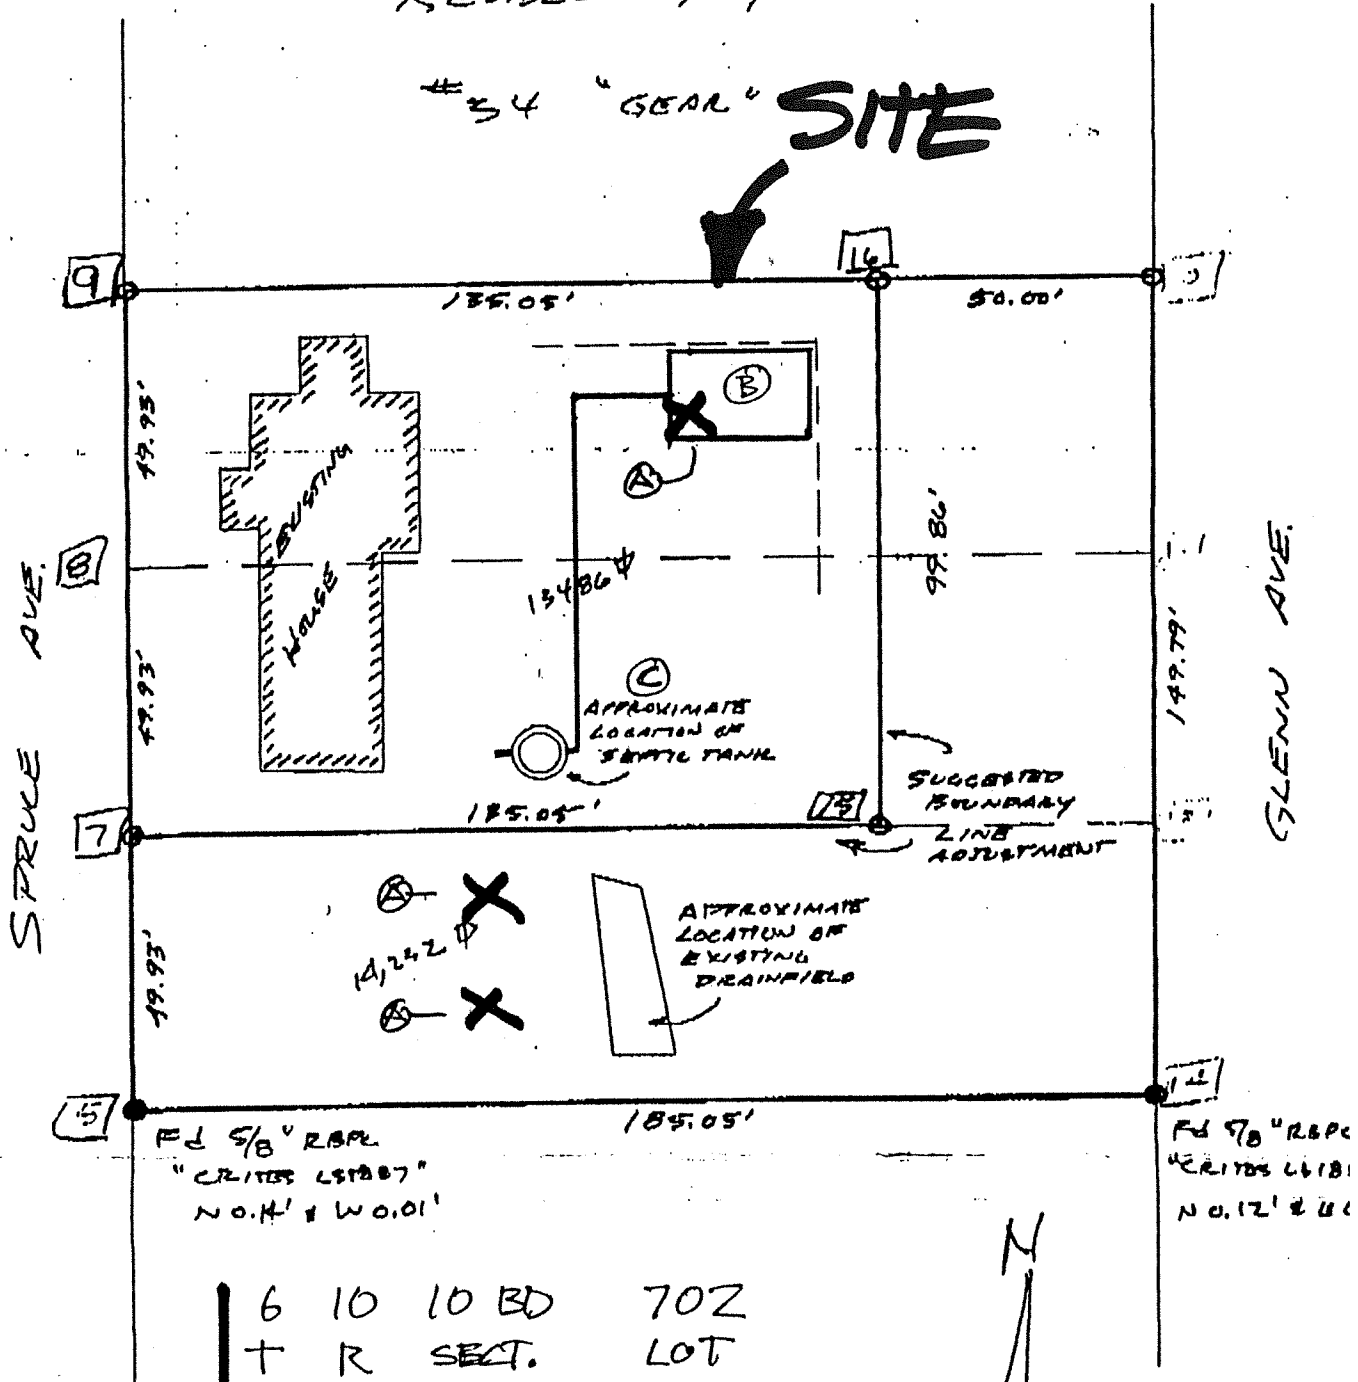 #34 "GEAR" SITE
9
16
135.05'
50.00'
49.93'
B
A
EXISTING
HOUSE
99.86'
8
13486
SPRUCE AVE.
GLENN AVE.
49.93'
149.79'
C
APPROXIMATE
LOCATION OF
SEPTIC TANK
SUGGESTED
BOUNDARY
LINE
ADJUSTMENT
135.05'
15
7
A
APPROXIMATE
LOCATION OF
EXISTING
DRAINFIELD
14,232
49.93'
A
5
185.05'
Fd 5/8" RBPC
"CRITES LS1887"
N 0.14' & W 0.01'
Fd 5/8" RBPC
"CRITES
N 0.12' &
N
6 10 10 BD 702
T R SECT. LOT